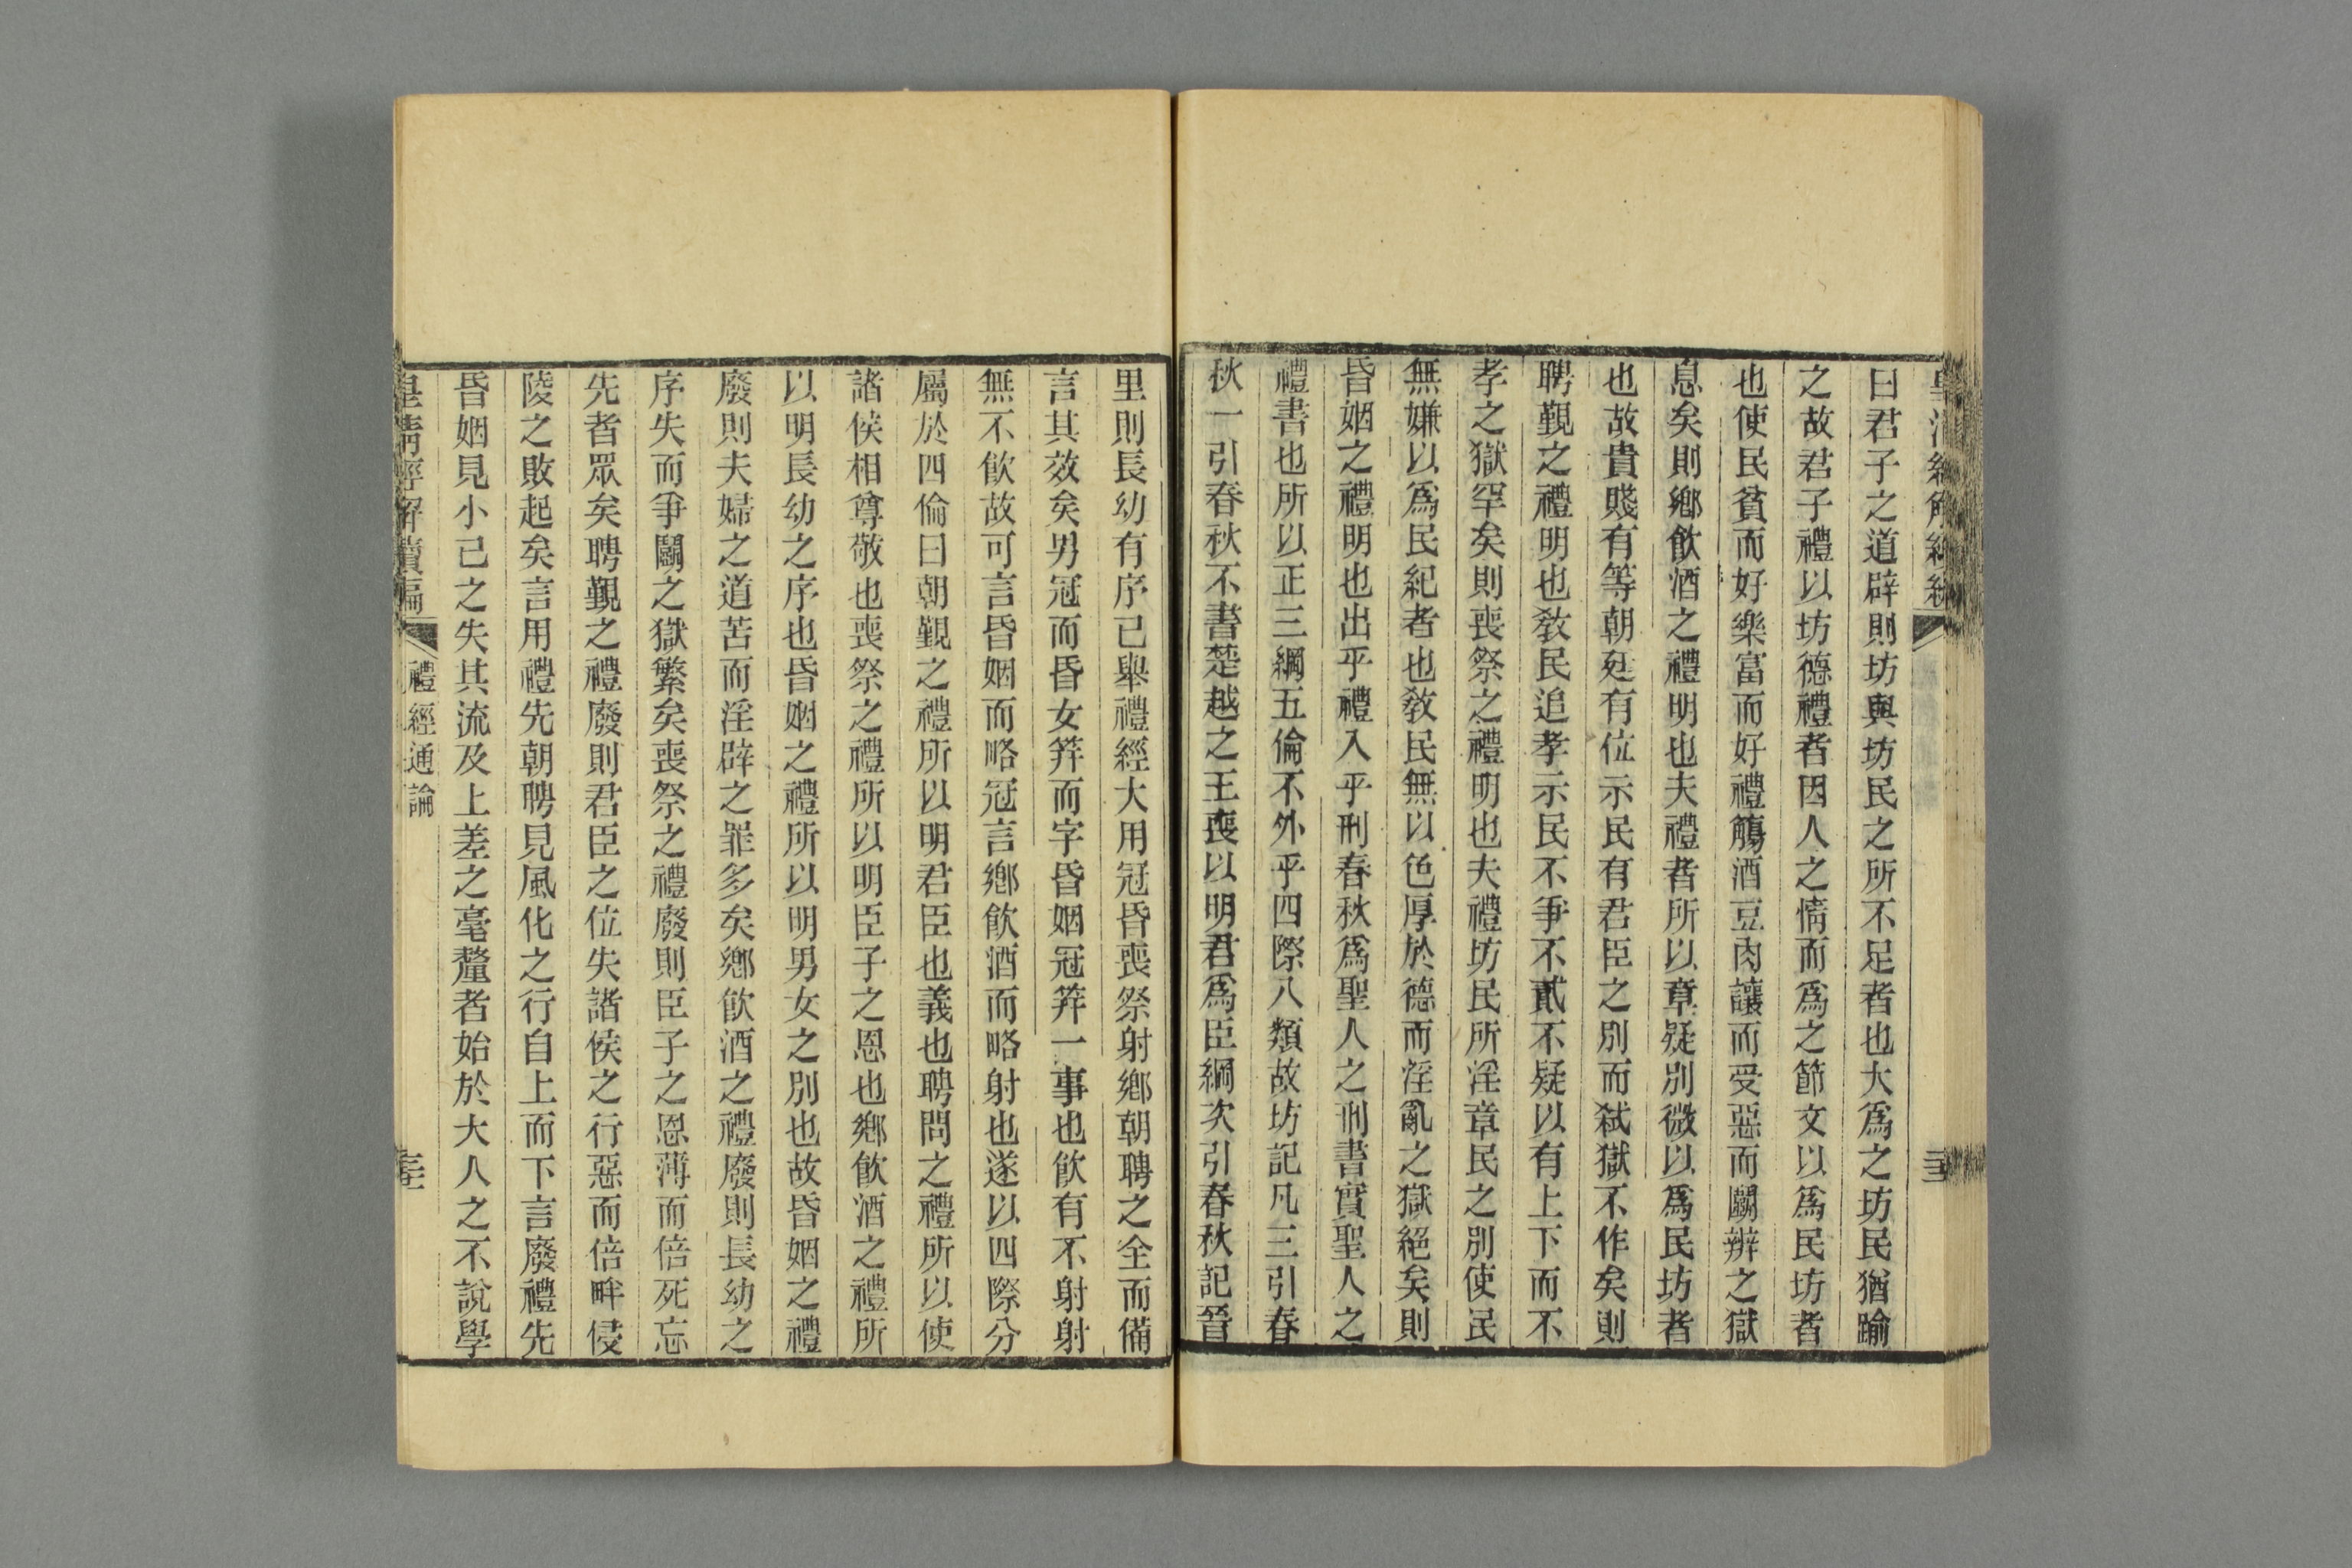 皇清經解續編
曰君子之道辟則坊與坊民之所不足者也大爲之坊民猶踰
之故君子禮以坊德禮者因人之情而爲之節文以爲民坊者
也使民貧而好樂富而好禮觴酒豆肉讓而受惡而鬭辨之獄
息矣則鄉飲酒之禮明也夫禮者所以章疑別微以爲民坊者
也故貴賤有等朝廷有位示民有君臣之別而弑獄不作矣則
聘覲之禮明也敎民追孝示民不爭不貳不疑以有上下而不
孝之獄罕矣則喪祭之禮明也夫禮坊民所淫章民之別使民
無嫌以爲民紀者也敎民無以色厚於德而淫亂之獄絕矣則
昏姻之禮明也出乎禮入乎刑春秋爲聖人之刑書實聖人之
禮書也所以正三綱五倫不外乎四際八類故坊記凡三引春
秋一引春秋不書楚越之王喪以明君爲臣綱次引春秋記晉
里則長幼有序已舉禮經大用冠昏喪祭射鄉朝聘之全而備
言其效矣男冠而昏女笄而字昏姻冠笄一事也飲有不射射
無不飲故可言昏姻而略冠言鄉飲酒而略射也遂以四際分
屬於四倫曰朝覲之禮所以明君臣也義也聘問之禮所以使
諸侯相尊敬也喪祭之禮所以明臣子之恩也鄉飲酒之禮所
以明長幼之序也昏姻之禮所以明男女之別也故昏姻之禮
廢則夫婦之道苦而淫辟之罪多矣鄉飲酒之禮廢則長幼之
序失而爭鬭之獄繁矣喪祭之禮廢則臣子之恩薄而倍死忘
先者眾矣聘覲之禮廢則君臣之位失諸侯之行惡而倍畔侵
陵之敗起矣言用禮先朝聘見風化之行自上而下言廢禮先
昏姻見小己之失其流及上差之毫釐者始於大人之不說學
皇清經解續編
禮經通論